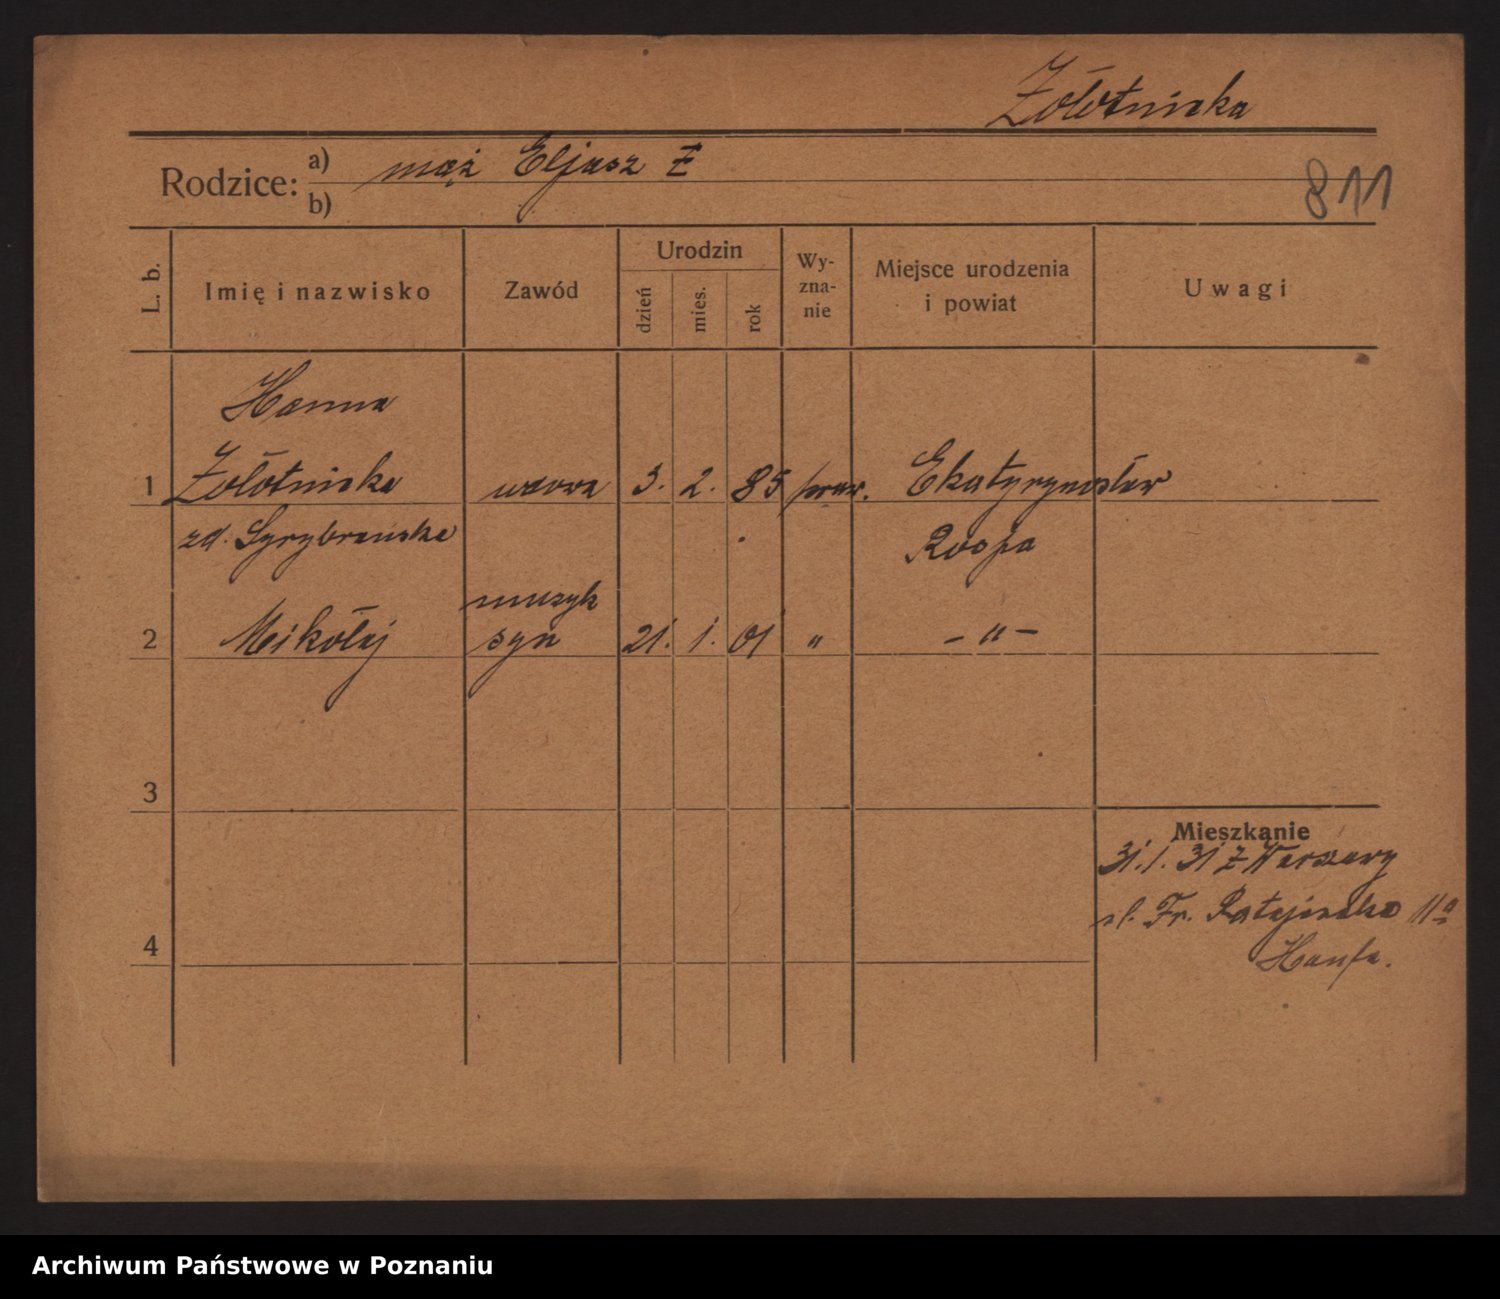 Zołotnicka
Rodzice: a) mąż Eljasz Z
b)
811
L. b.
Imię i nazwisko
Zawód
Urodzin
dzień
mies.
rok
Wy-
zna-
nie
Miejsce urodzenia
i powiat
Uwagi
Hanna
1 Zołotnicka wdowa 3. 2. 85 praw. Ekatyrynosław
zd. Syrybrańska Rosja
muzyk
2 Mikołaj syn 21. 1. 01 " - " -
3
Mieszkanie
31. 1. 31 z Warszawy
ul. Fr. Ratajczaka 11a
4
Archiwum Państwowe w Poznaniu